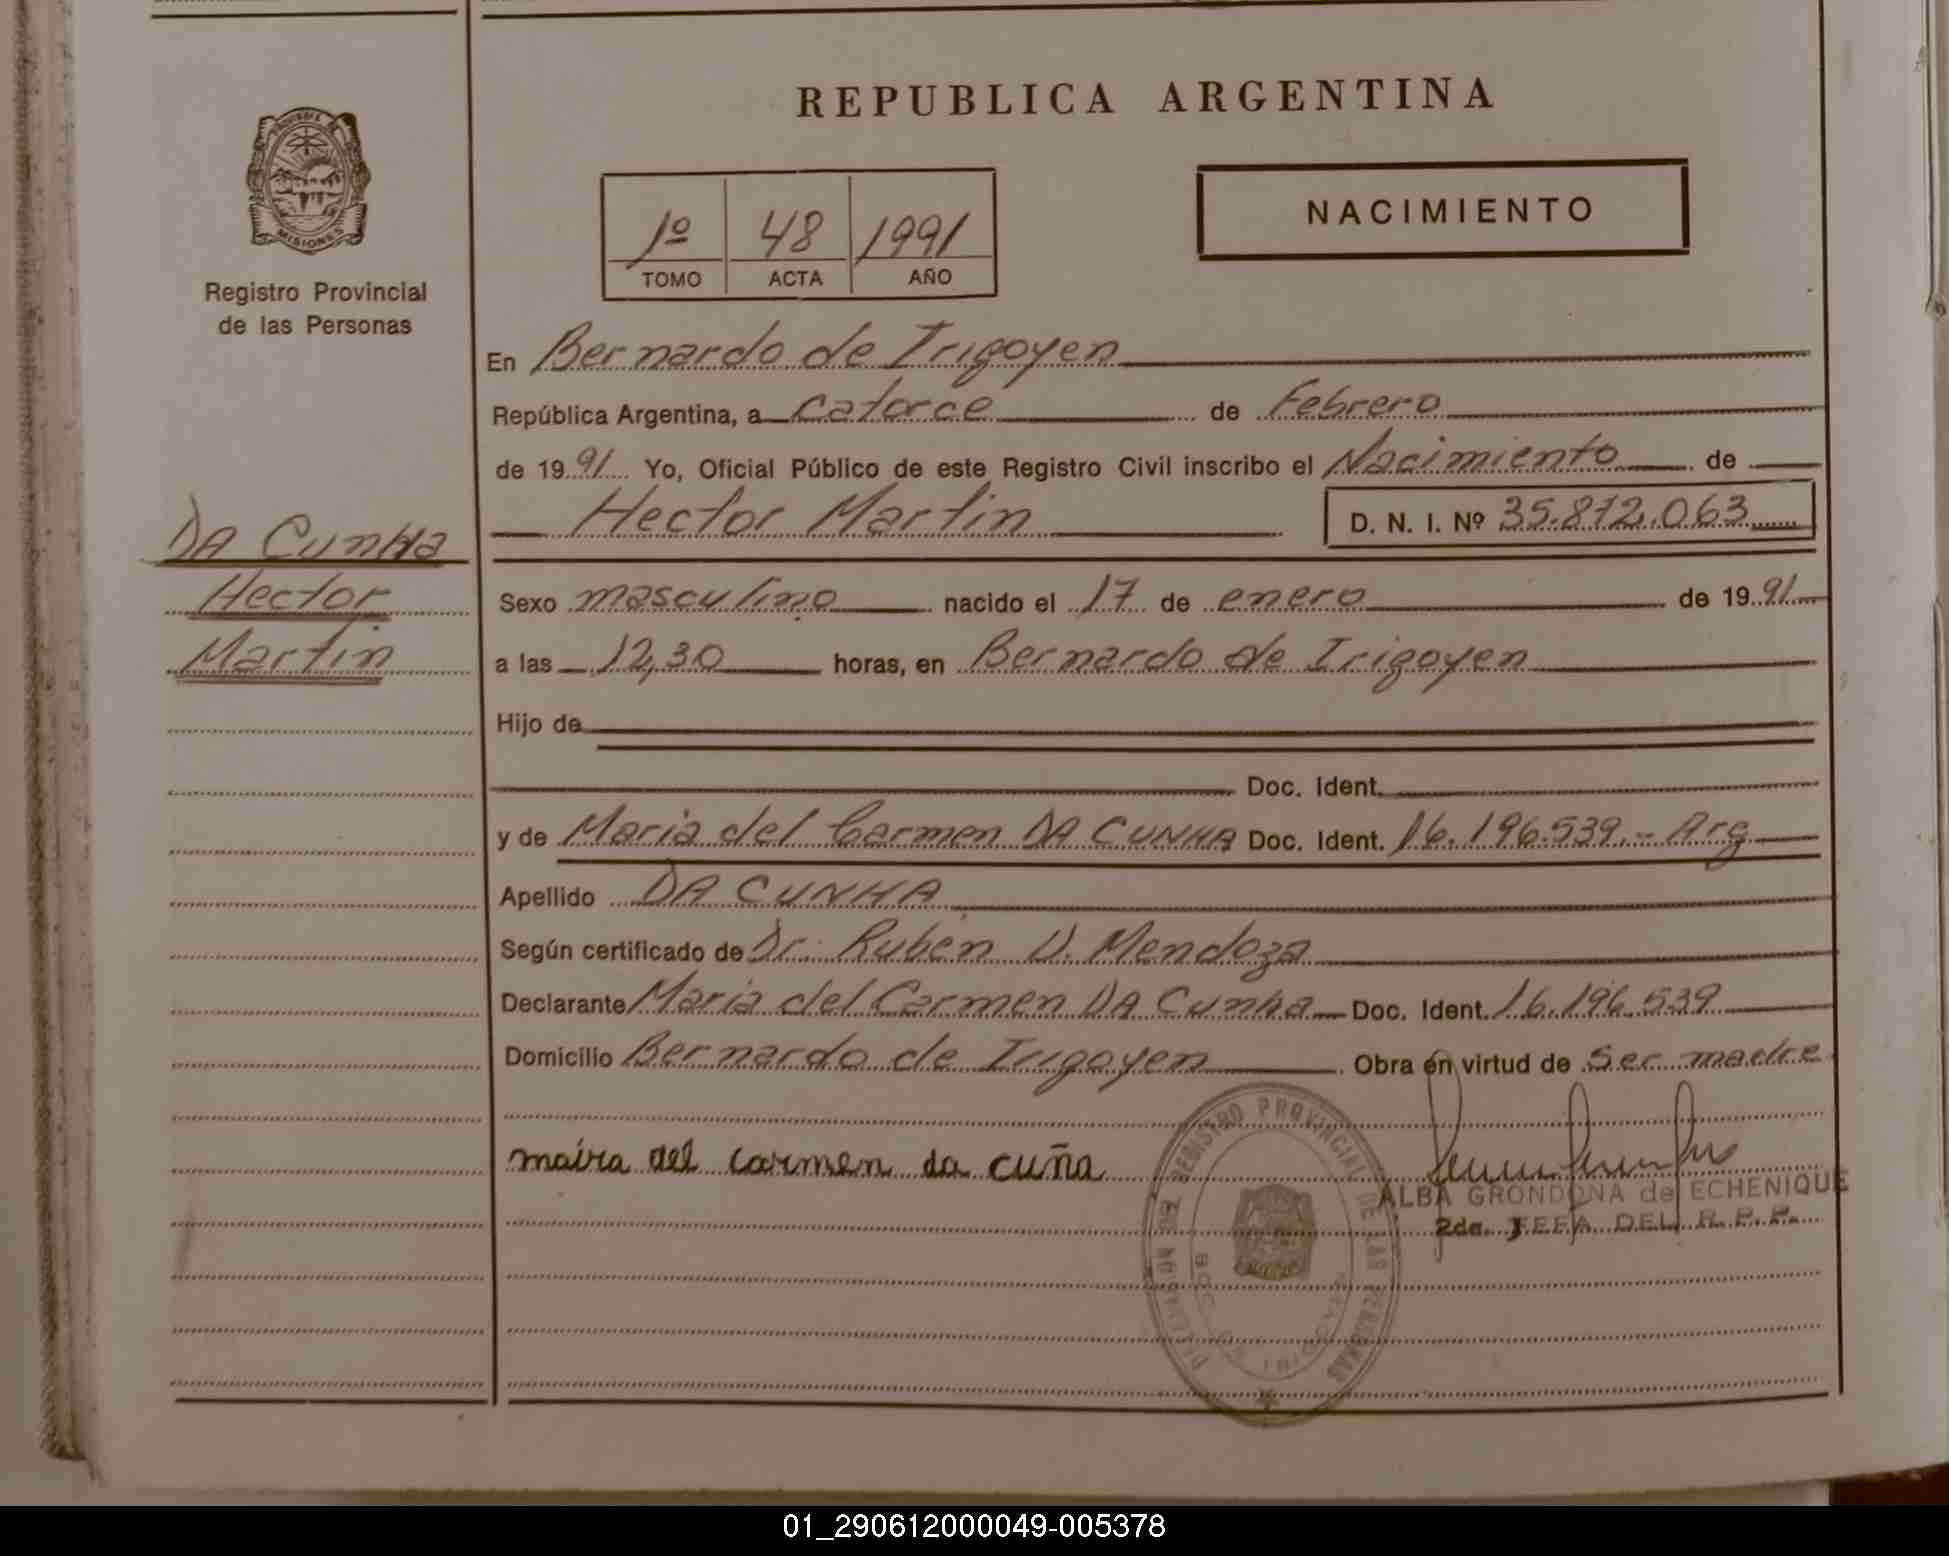 REPUBLICA ARGENTINA
MISIONES
Registro Provincial
de las Personas
1º 48 1991
TOMO ACTA AÑO
NACIMIENTO
En Bernardo de Irigoyen
República Argentina, a catorce de Febrero
de 1991 Yo, Oficial Público de este Registro Civil inscribo el Nacimiento de
Hector Martin D. N. I. Nº 35.872.063
DA CUNHA
Hector
Martin
Sexo masculino nacido el 17 de enero de 1991
a las 12,30 horas, en Bernardo de Irigoyen
Hijo de
Doc. Ident.
y de Maria del Carmen DA CUNHA Doc. Ident. 16.196.539.- Arg
Apellido DA CUNHA
Según certificado de Dr. Ruben D. Mendoza
Declarante Maria del Carmen DA Cunha Doc. Ident. 16.196.539
Domicilio Bernardo de Irigoyen Obra en virtud de Ser madre
maira del carmen da cuña
REGISTRO PROVINCIAL DE LAS PERSONAS
ALBA GRONDONA de ECHENIQUE
2da. JEFA DEL R.P.P.
01_290612000049-005378